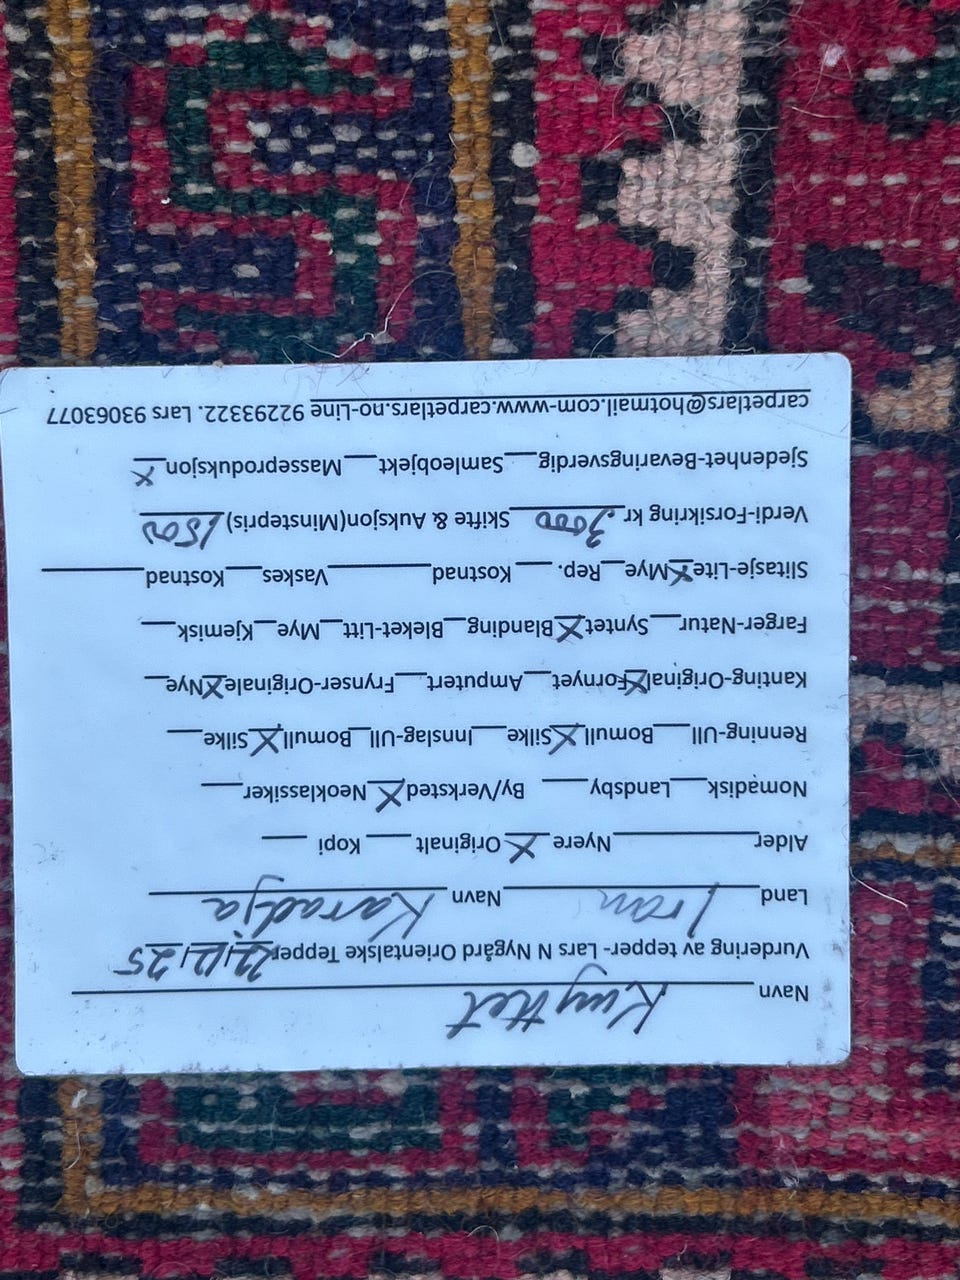 Navn Knyttet
Vurdering av tepper- Lars N Nygård Orientalske Tepper 22,12,25
Land Iran Navn Karadja
Alder___ Nyere X Originalt___ Kopi___
Nomadisk___ Landsby___ By/Verksted X Neoklassiker___
Renning-Ull___ Bomull X Silke___ Innslag-Ull___ Bomull X Silke___
Kanting-Original X Fornyet___ Amputert___ Frynser-Originale X Nye___
Farger-Natur___ Syntet X Blanding___ Bleket-Litt___ Mye___ Kjemisk___
Slitasje-Lite X Mye___ Rep.___ Kostnad___ Vaskes___ Kostnad___
Verdi-Forsikring kr 3000 Skifte & Auksjon(Minstepris) 1500
Sjedenhet-Bevaringsverdig___ Samleobjekt___ Masseproduksjon X
carpetlars@hotmail.com-www.carpetlars.no-Line 92293322. Lars 93063077